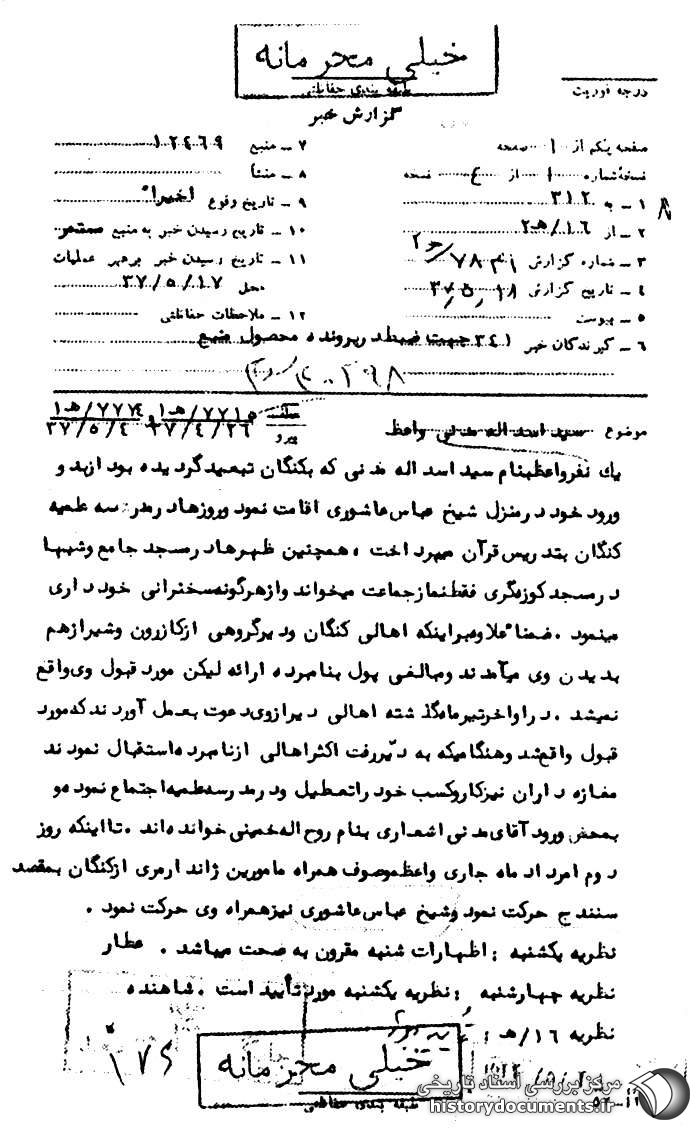 خیلی محرمانه
طبقه بندی حفاظتی
درجه فوریت
گزارش خبر
صفحه یکم از ۱ صفحه
نسخه شماره ۱ از ٤ نسخه
۱ ــ به ۳۱۲
۲ ــ از ۱۶/هـ۲
۳ ــ شماره گزارش
٤ ــ تاریخ گزارش ۳۷٫۵٫۱۸
۵ ــ پیوست
۶ ــ گیرندگان خبر ۳٤۱ جهت ضبط در پرونده محصول منبع
۷ ــ منبع ۱۲٤۶۹
۸ ــ منشأ
۹ ــ تاریخ وقوع اخیراً
۱۰ ــ تاریخ رسیدن خبر به منبع مستمر
۱۱ ــ تاریخ رسیدن خبر برهبر عملیات
محل ۳۷/۵/۱۷
۱۲ ــ ملاحظات حفاظتی
موضوع سید اسداله مدنی واعظ
پیرو ۷۷۱۵/هـ۱ و ۷۷۷٤/هـ۱
۳۷/٤/۲۶ ۳۷/۵/٤
یك نفرواعظبنام سید اسد اله مدنی که بکنگان تبعید گردیده بود ازبد و
ورود خود درمنزل شیخ عباس عاشوری اقامت نمود وروزهاد رمدرسه علمیه
کنگان بتدریس قرآن میپرداخت ، همچنین ظهرهاد رمسجد جامع وشبها
درمسجد کوزه‌گری فقطنمازجماعت میخواند وازهرگونه‌سخنرانی خود داری
مینمود . ضمناً علاوه‌براینکه اهالی کنگان ودیرگروهی ازکازرون وشیرازهم
بدیدن وی میآمدند ومبالغی پول بنامبرده ارائه لیکن مورد قبول وی‌واقع
نمیشد . دراواخرتیرماه‌گذشته اهالی دیرازوی‌دعوت بعمل آوردند که‌مورد
قبول واقع‌شد وهنگامیکه به دیّررفت اکثراهالی ازنامبرده‌استقبال نمودند
مغازه داران نیزکاروکسب خود راتعطیل ودرمدرسه‌علمیه‌اجتماع نموده‌و
بمحض ورود آقای‌مدنی اشعاری بنام روح اله‌خمینی خوانده‌اند . تااینکه روز
دوم امرداد ماه جاری واعظ‌موصوف همراه مامورین ژاندارمری ازکنگان بمقصد
سنندج حرکت نمود وشیخ عباس‌عاشوری نیزهمراه وی حرکت نمود .
نظریه یکشنبه : اظهارات شنبه مقرون به صحت میباشد . عطار
نظریه چهارشنبه : نظریه یکشنبه مورد تأیید است . شاهنده
نظریه ۱۶/هـ :
خیلی محرمانه
طبقه بندی حفاظتی
مرکز بررسی اسناد تاریخی
historydocuments.ir